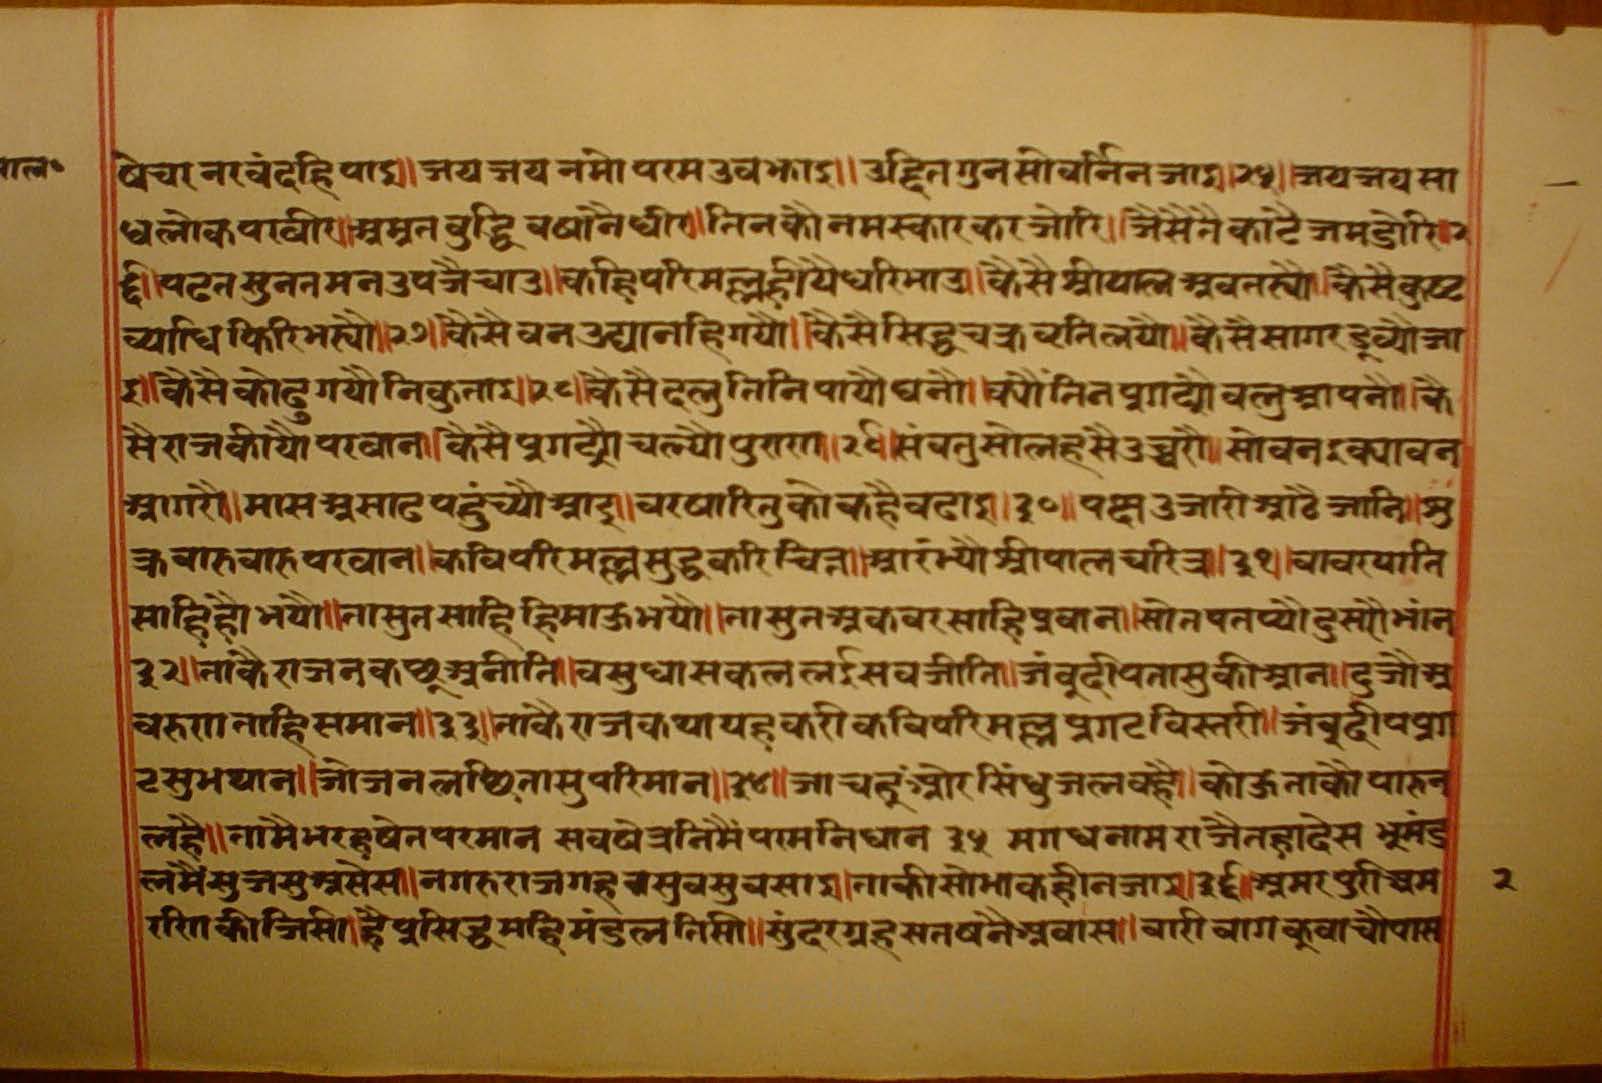 पाल॰
षेचर नर वंदहि पाइ॥ जय जय नमो परम उवझाइ॥ उद्दित गुन सो वर्नि न जाइ॥२५॥ जय जय सा
धु लोक परवीर॥ अमृत वुद्धि वषांनै धीर॥ तिनकौ नमस्कार कर जोरि॥ जैसै तै काटै जम डोरि॥२
६॥ पढत सुनत मन उपजै चाउ॥ कहि परिमल्ल हीयै धरि भाउ॥ कैसै श्रीपाल अवतस्यौ॥ कैसै कुष्ट
व्याधि फिरि भस्यौ॥२७॥ कैसै वन उद्यानहि गयौ॥ कैसै सिद्धचक्र व्रत लियौ॥ कैसै सागर डूव्यौ जा
इ॥ कैसै कोढु गयौ निकुताइ॥२८॥ कैसै दलु तिनि पायौ घनौ॥ क्यौं तिन प्रगट्यौ वलु आपनौ॥ कै
सै राज कीयौ परवान॥ कैसै प्रगट्यौ चल्यौ पुराण॥२९॥ संवतु सोलह सै उच्चरौ॥ सोवन इक्यावन
आगरौ॥ मास असाढ पहुंच्यौ आइ॥ वरषा रितु को कहै वढाइ॥३०॥ पछ उजारी आठै जानि॥ सु
क्र वारु वारु परवान॥ कवि परिमल्ल सुद्ध करि चित्त॥ आरंभ्यौ श्रीपाल चरित्र॥३१॥ वावर पाति
साहि हौ भयौ॥ ता सुत साहि हिमाऊ भयौ॥ ता सुत अकवर साहि प्रवान॥ सो तप तप्यौ दुसरौ भांन
३२॥ ताकै राज न कछू अनीति॥ वसुधा सकल लई सव जीति॥ जंवुदीप तासु की आन॥ दुजौ अ
वरु ण ताहि समान॥३३॥ ताकै राज कथा यह करी कवि परिमल्ल प्रगट विस्तरी॥ जंवुदीप प्रग
ट सुभ थान॥ जोजन लछि तासु परिमान॥३४॥ जा चहूं ओर सिंधु जल वहै॥ कोऊ ताकौ पारु न
लहै॥ तामै भरह षेत परमान सव षेत्रनि मैं परम निधान ३५ मगध नाम राजै तहा देस भूमंड
ल मैं सुजसु असेस॥ नगरु राजगह वसु वसु वसाइ॥ ताकी सोभा कही न जाइ॥३६॥ अमरपुरी अम
रणि की जिसी॥ है प्रसिद्ध महि मंडल तिसी॥ सुंदर ग्रह सतषनै अवास॥ वारी वाग कूवा चौपास
२